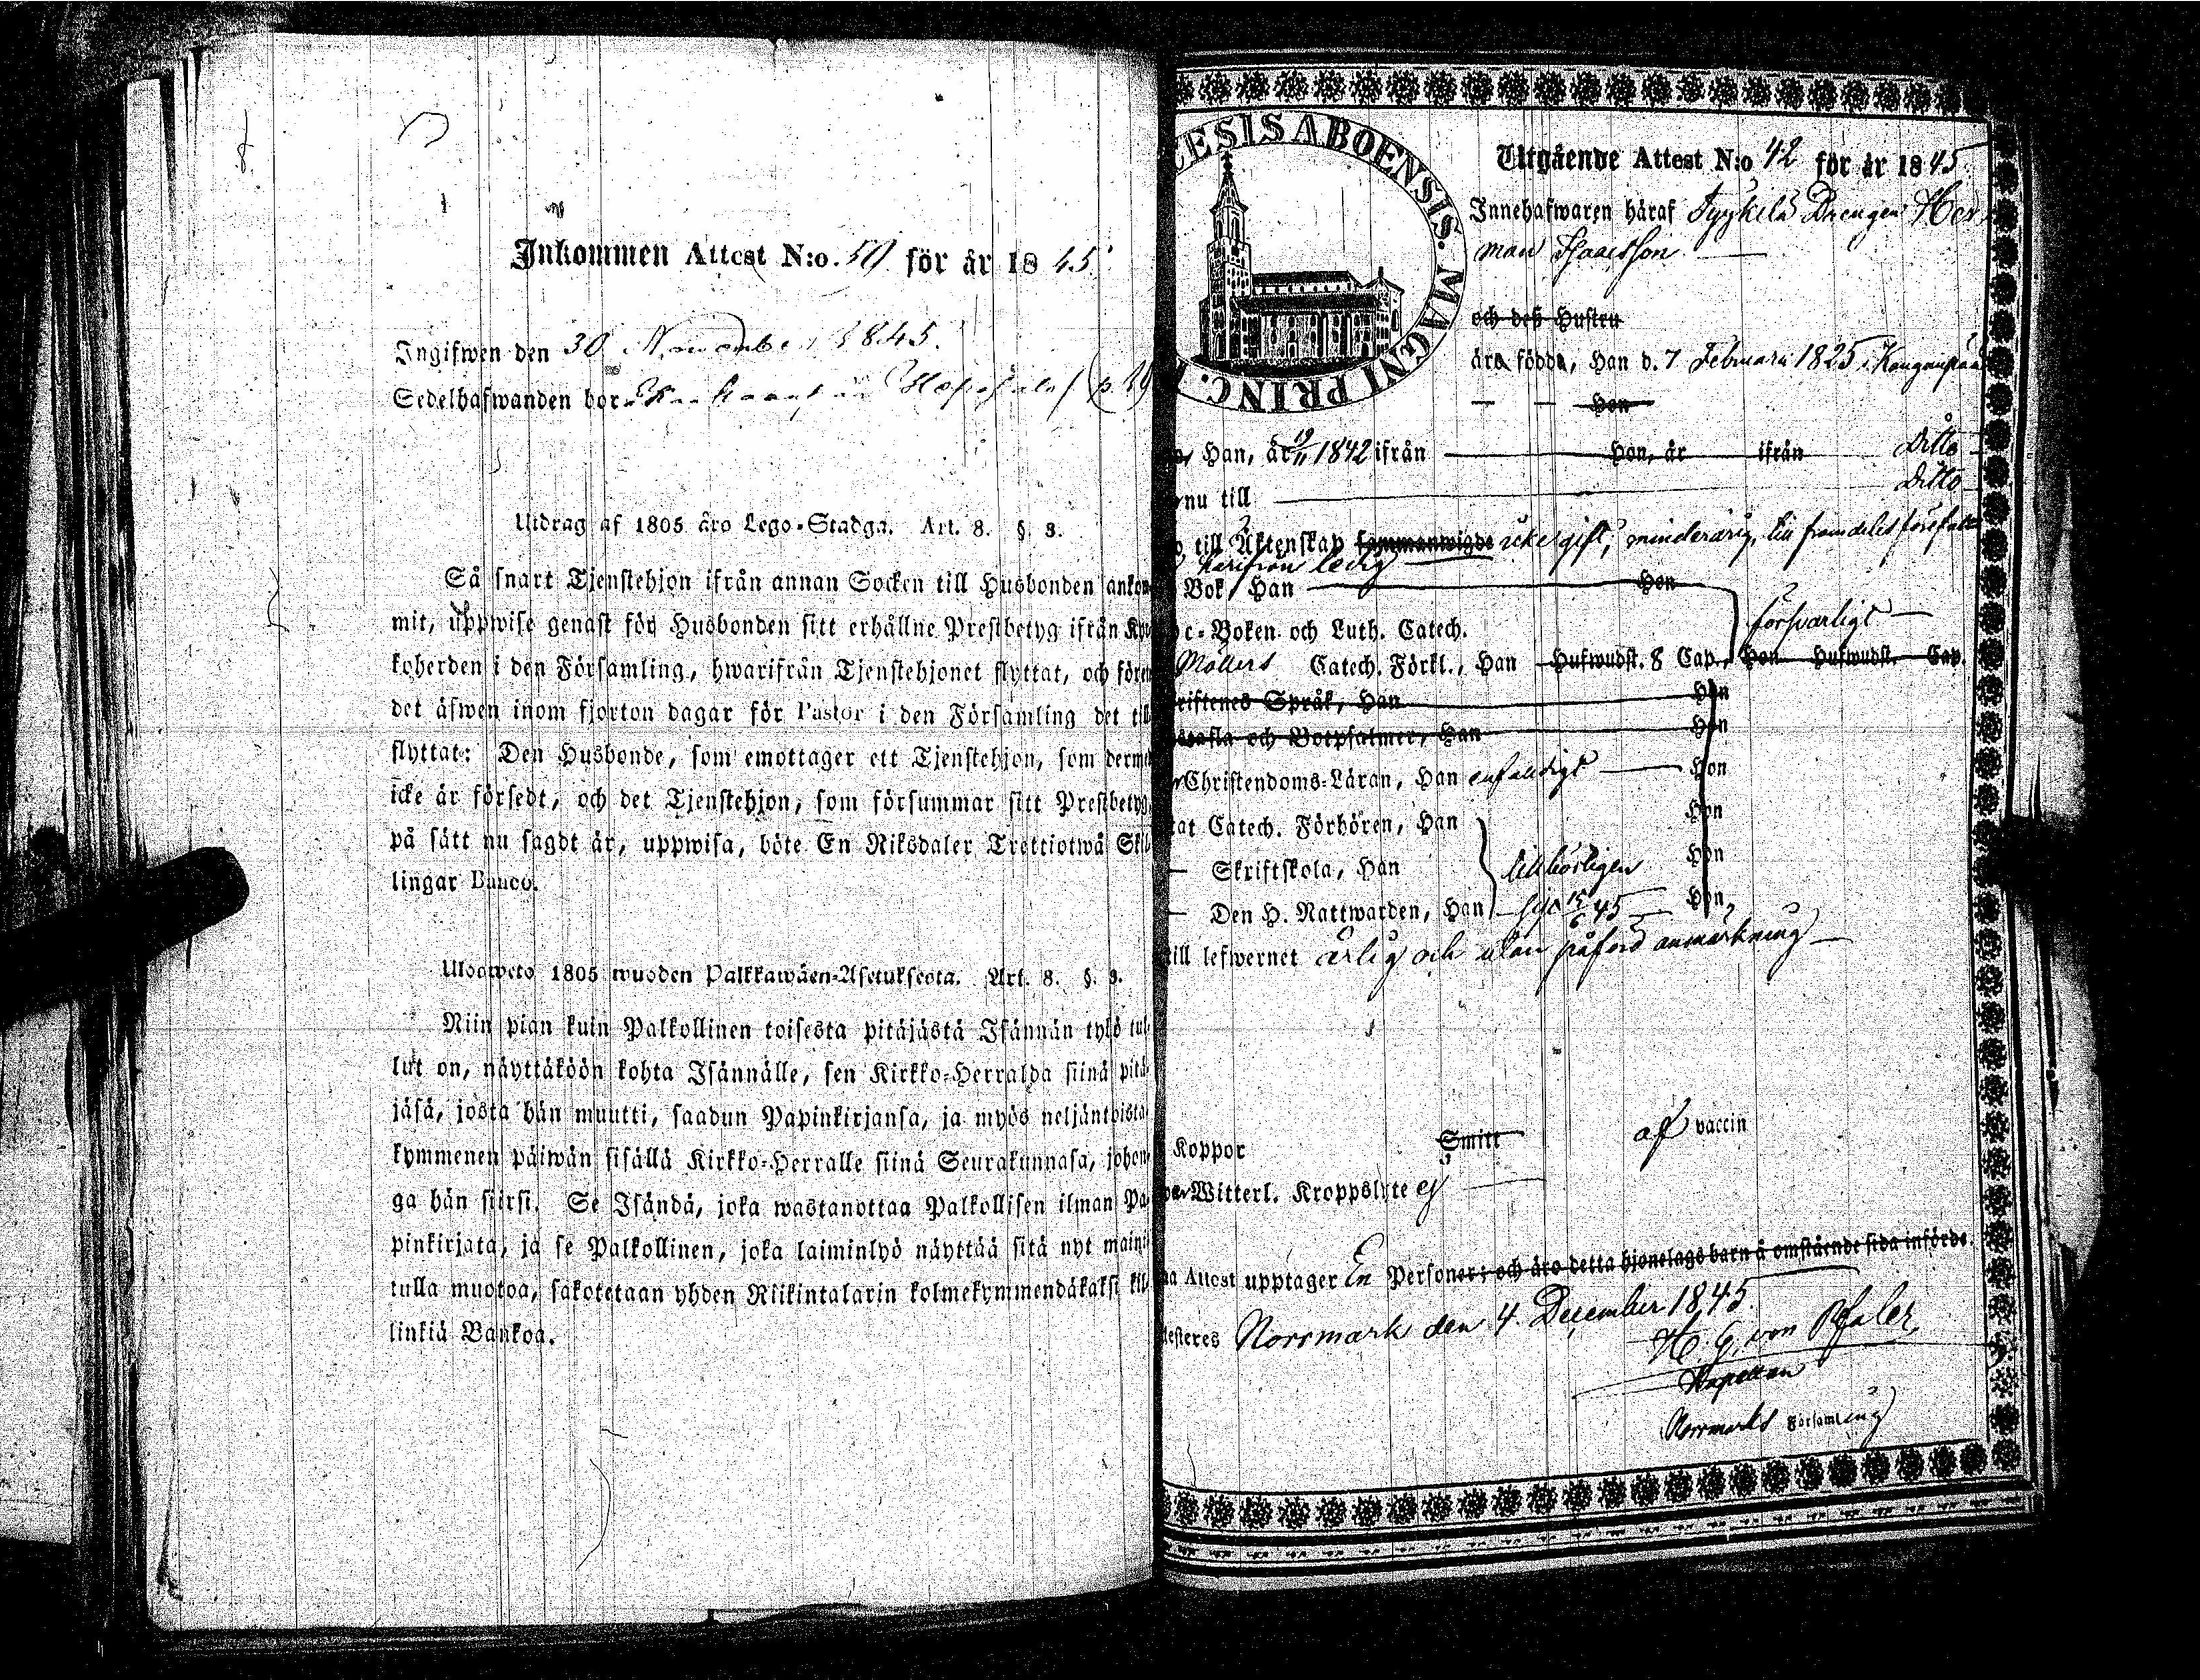 Inkommen Attest N:o. 59 för år 1845
Ingifwen den 30 November 1845.
Sedelhafwanden bor
Utdrag af 1805 års Lego-Stadga. Art. 8. §. 3.
Så snart Tjenstehjon ifrån annan Socken till Husbonden ankom
mit, uppwise genast för Husbonden sitt erhållne Prestbetyg ifrån Kyr
koherden i den Församling, hwarifrån Tjenstehjonet flyttat, och förer
det äfwen inom fjorton dagar för Pastor i den Församling det till
flyttat: Den Husbonde, som emottager ett Tjenstehjon, som dermed
icke är försedt, och det Tjenstehjon, som försummar sitt Prestbetyg,
på sätt nu sagdt är, uppwisa, böte En Riksdaler Trettiotwå Skil
lingar Banco.
Ulosweto 1805 wuoden Palkkawäen-Asetuksesta. Art. 8. §. 3.
Niin pian kuin Palkollinen toisesta pitäjästä Isännän tykö tul-
lut on, näyttäköön kohta Isännälle, sen Kirkko-Herralda siinä pitä-
jäsä, josta hän muutti, saadun Papinkirjansa, ja myös neljäntoista-
kymmenen päiwän sisällä Kirkko-Herralle siinä Seurakunnasa, johon-
ga hän siirsi. Se Isändä, joka wastanottaa Palkollisen ilman Pa-
pinkirjata, ja se Palkollinen, joka laiminlyö näyttää sitä nyt maini-
tulla muotoa, sakotetaan yhden Riikintalarin kolmekymmendäkaksi kil-
linkiä Bankoa.
ESIS ABOENSIS. MAGNI PRINC.
Utgående Attest N:o 42 för år 1845.
Innehafwaren häraf Tyykilä Drengen Her
man Isaacsson
och deß Hustru
äro födda, Han d. 7 Februari 1825 i Kanganpää
Hon
Han, år 19/11 1842 ifrån Hon, år ifrån Ditto
nu till Ditto
till Äktenskap sammanwigde icke gift, minderårig, till framdeles
härifrån ledig
Bok, Han Hon
c-Boken och Luth. Catech. försvarligt
Möllers Catech. Förkl., Han Hufwudst. 8 Cap., Hon Hufwudst. Cap.
riftenes Språk, Han Hon
tafla och Botpsalmer, Han Hon
Christendoms-Läran, Han enfaldigt Hon
at Catech. Förhören, Han Hon
Skriftskola, Han tillbörligen Hon
Den H. Nattwarden, Han 15/6 45 Hon
till lefwernet ärlig och utan påförd anmärkning
Koppor Smitt af vaccin
Witterl. Kroppslyte ej
na Attest upptager En Personer; och äro detta hjonelags barn å omstående sida införde.
testeres Norrmark den 4 December 1845.
H. G. von Pfaler
Kapellan
Norrmarks Församling